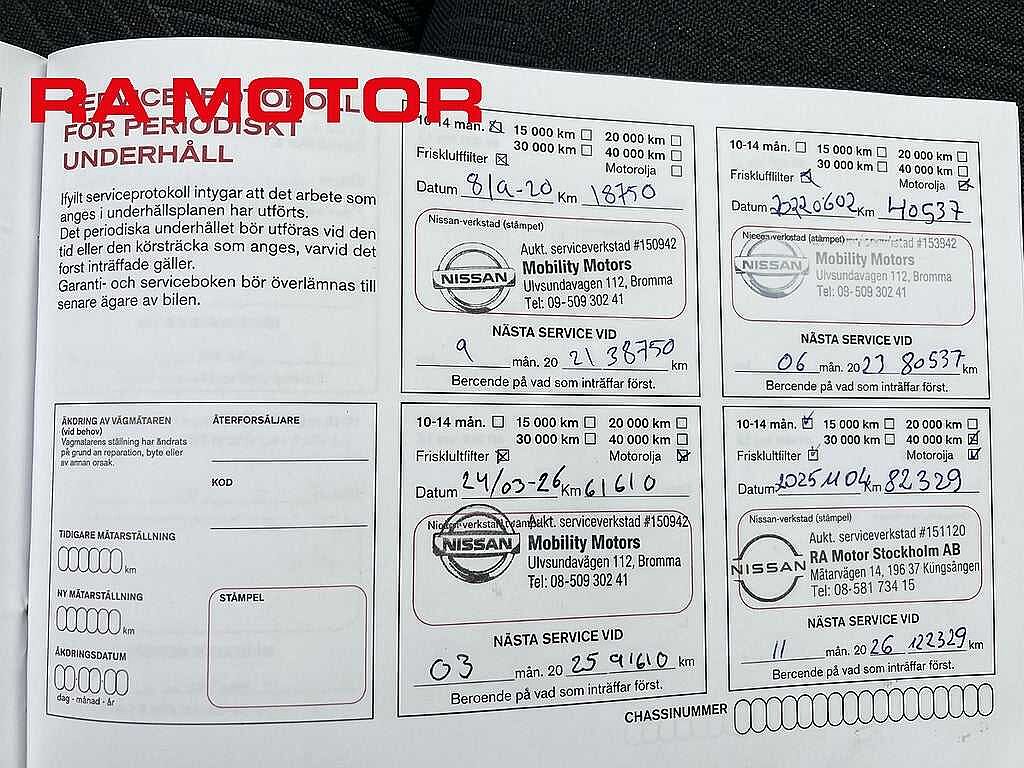 RA MOTOR
SERVICEPROTOKOLL
FÖR PERIODISKT
UNDERHÅLL
Ifyllt serviceprotokoll intygar att det arbete som
anges i underhållsplanen har utförts.
Det periodiska underhållet bör utföras vid den
tid eller den körsträcka som anges, varvid det
först inträffade gäller.
Garanti- och serviceboken bör överlämnas till
senare ägare av bilen.
10-14 mån. 15 000 km 20 000 km
30 000 km 40 000 km
Friskluftfilter Motorolja
Datum 8/9-20 Km 18750
Nissan-verkstad (stämpel)
Aukt. serviceverkstad #150942
NISSAN Mobility Motors
Ulvsundavägen 112, Bromma
Tel: 08-509 302 41
NÄSTA SERVICE VID
9 mån. 20 21 38750 km
Beroende på vad som inträffar först.
10-14 mån. 15 000 km 20 000 km
30 000 km 40 000 km
Friskluftfilter Motorolja
Datum 20220602 Km 40537
Nissan-verkstad (stämpel)
NISSAN Mobility Motors
Ulvsundavägen 112, Bromma
Tel: 08-509 302 41
NÄSTA SERVICE VID
06 mån. 20 23 80537 km
Beroende på vad som inträffar först.
ÄNDRING AV VÄGMÄTAREN
(vid behov)
Vägmätarens ställning har ändrats
på grund an reparation, byte eller
av annan orsak.
ÅTERFÖRSÄLJARE
KOD
TIDIGARE MÄTARSTÄLLNING
km
NY MÄTARSTÄLLNING
km
ÄNDRINGSDATUM
dag - månad - år
STÄMPEL
10-14 mån. 15 000 km 20 000 km
30 000 km 40 000 km
Friskluftfilter Motorolja
Datum 24/03-26 Km 61610
Nissan-verkstad (stämpel)
Aukt. serviceverkstad #150942
NISSAN Mobility Motors
Ulvsundavägen 112, Bromma
Tel: 08-509 302 41
NÄSTA SERVICE VID
03 mån. 20 25 91610 km
Beroende på vad som inträffar först.
10-14 mån. 15 000 km 20 000 km
30 000 km 40 000 km
Friskluftfilter Motorolja
Datum 20251104 Km 82329
Nissan-verkstad (stämpel)
Aukt. serviceverkstad #151120
NISSAN RA Motor Stockholm AB
Mätarvägen 14, 196 37 Kungsängen
Tel: 08-581 734 15
NÄSTA SERVICE VID
11 mån. 20 26 122329 km
Beroende på vad som inträffar först.
CHASSINUMMER